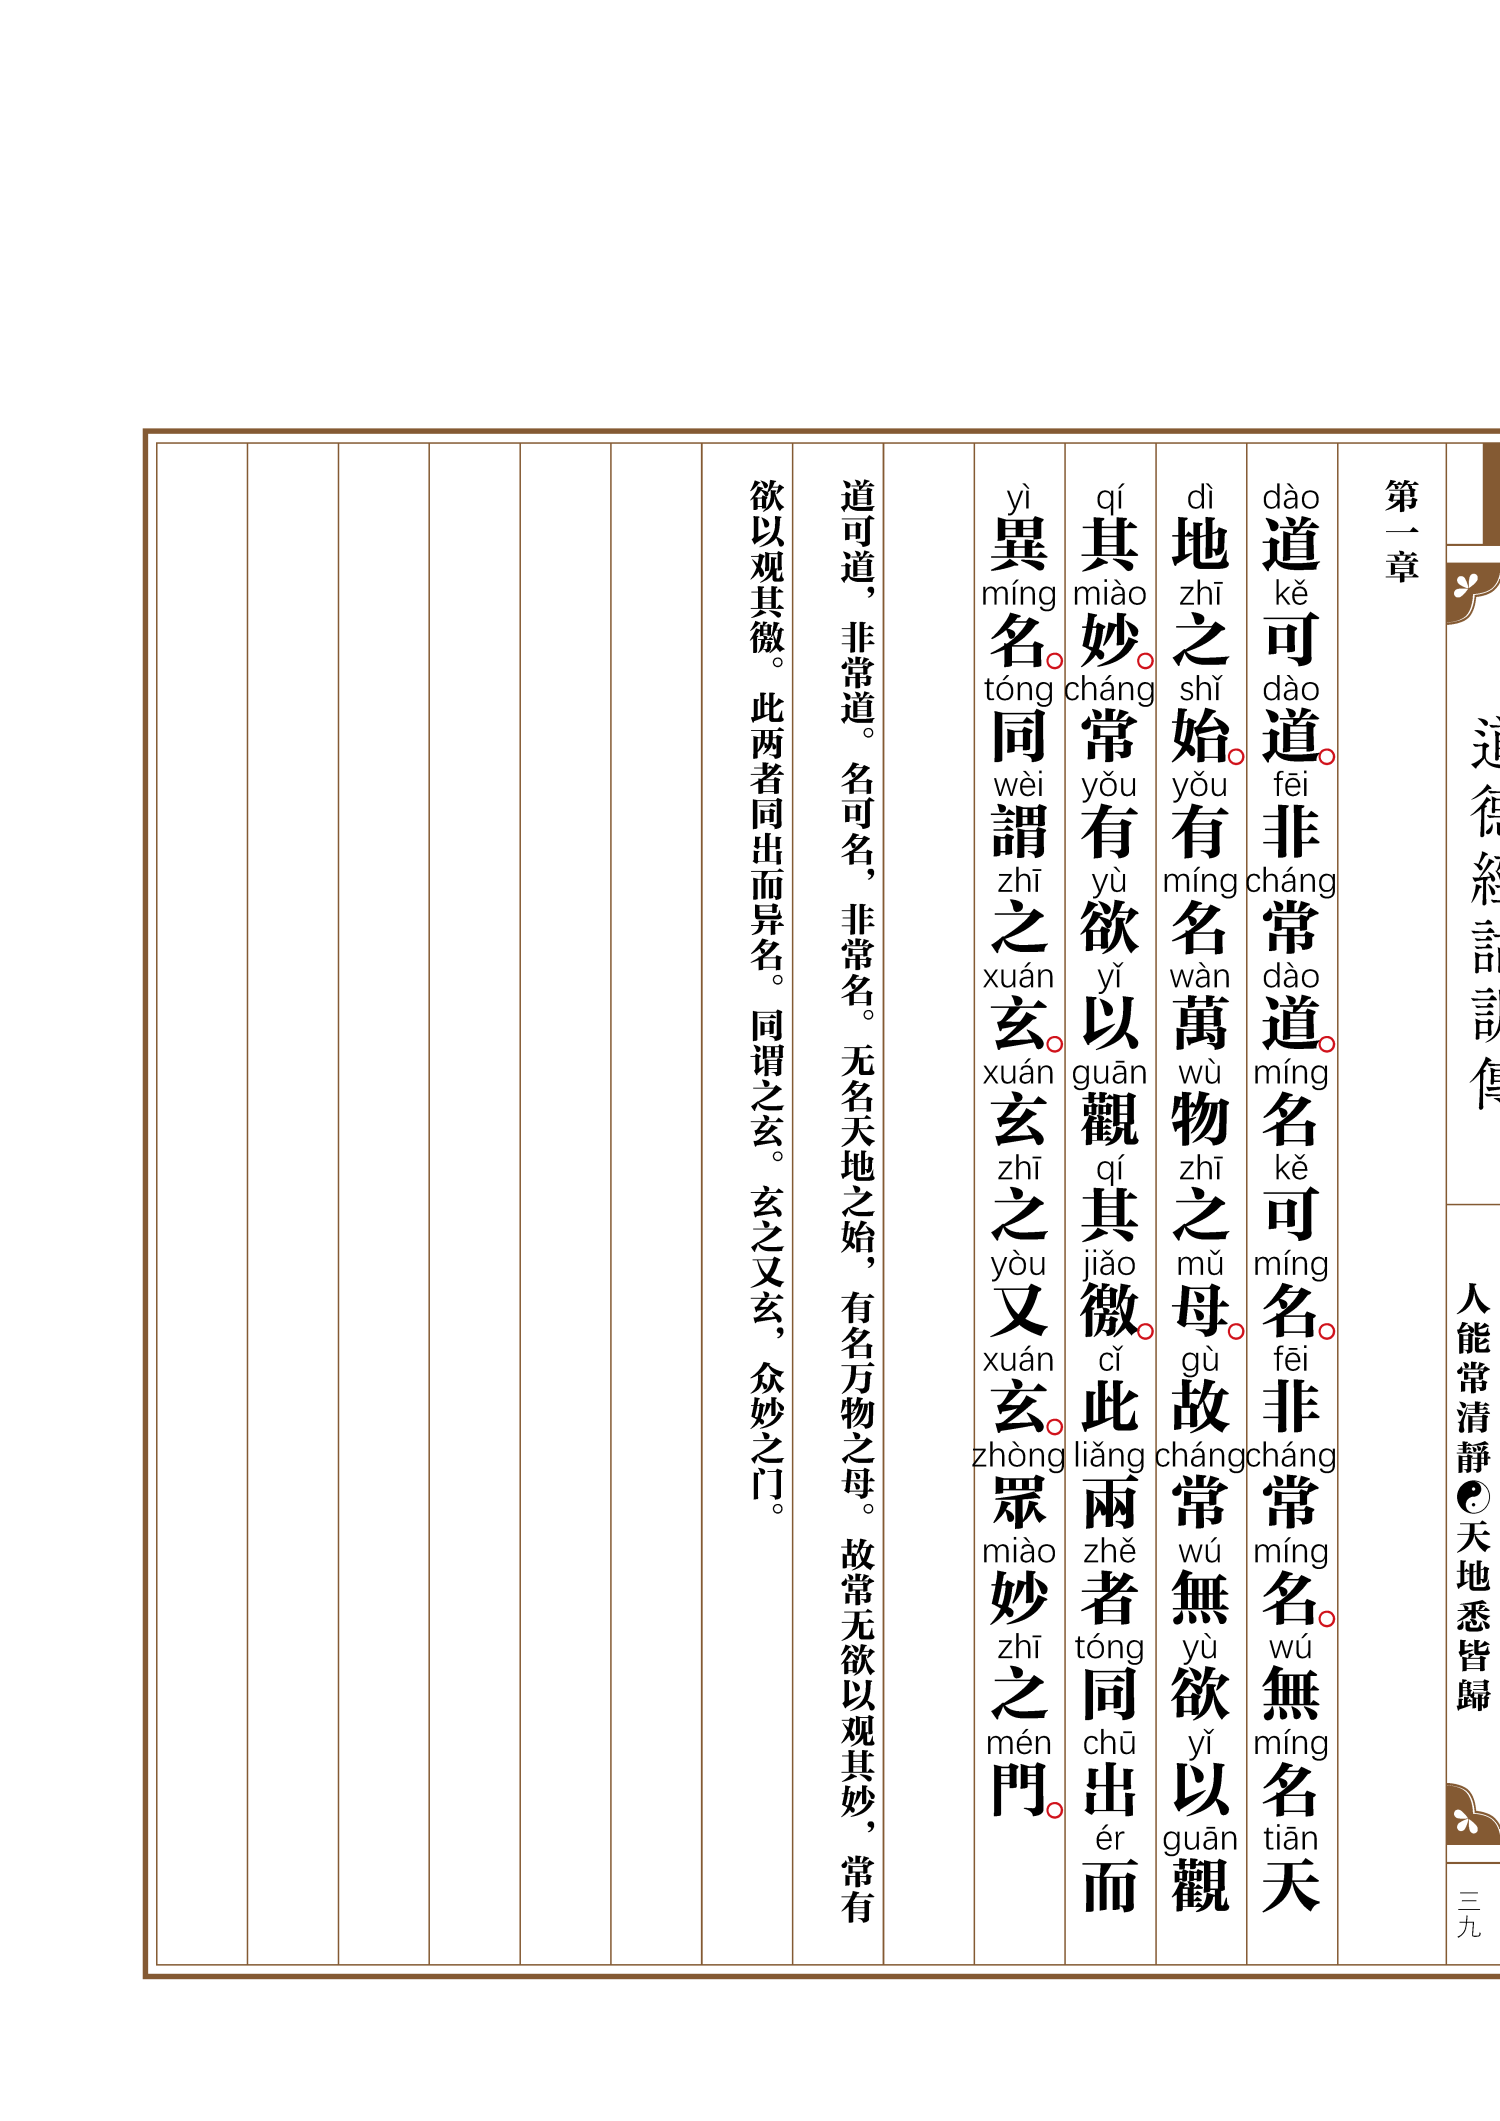 道德經詁訓傳
人能常清靜天地悉皆歸
三九
第一章
dào 道 kě 可 dào 道。 fēi 非 cháng 常 dào 道。 míng 名 kě 可 míng 名。 fēi 非 cháng 常 míng 名。 wú 無 míng 名 tiān 天
dì 地 zhī 之 shǐ 始。 yǒu 有 míng 名 wàn 萬 wù 物 zhī 之 mǔ 母。 gù 故 cháng 常 wú 無 yù 欲 yǐ 以 guān 觀
qí 其 miào 妙。 cháng 常 yǒu 有 yù 欲 yǐ 以 guān 觀 qí 其 jiǎo 徼。 cǐ 此 liǎng 兩 zhě 者 tóng 同 chū 出 ér 而
yì 異 míng 名。 tóng 同 wèi 謂 zhī 之 xuán 玄。 xuán 玄 zhī 之 yòu 又 xuán 玄。 zhòng 眾 miào 妙 zhī 之 mén 門。
道可道，非常道。名可名，非常名。无名天地之始，有名万物之母。故常无欲以观其妙，常有
欲以观其徼。此两者同出而异名。同谓之玄。玄之又玄，众妙之门。